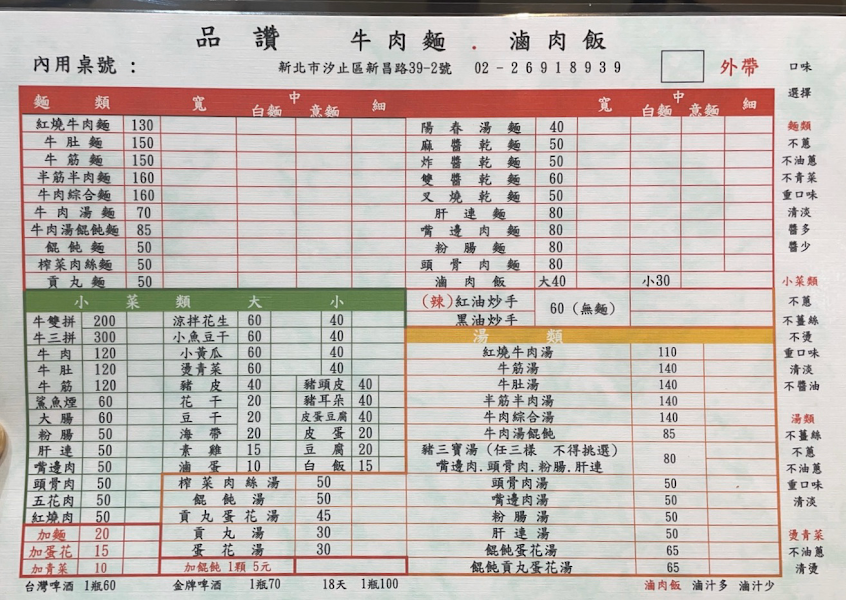 品讚 牛肉麵.滷肉飯
內用桌號: 新北市汐止區新昌路39-2號 02-26918939 外帶
麵類 寬 中 細
白麵 意麵
紅燒牛肉麵 130
牛肚麵 150
牛筋麵 150
半筋半肉麵 160
牛肉綜合麵 160
牛肉湯麵 70
牛肉湯餛飩麵 85
餛飩麵 50
榨菜肉絲麵 50
貢丸麵 50
寬 中 細
白麵 意麵
陽春湯麵 40
麻醬乾麵 50
炸醬乾麵 50
雙醬乾麵 60
叉燒乾麵 50
肝連麵 80
嘴邊肉麵 80
粉腸麵 80
頭骨肉麵 80
滷肉飯 大40 小30
(辣)紅油炒手 60 (無麵)
黑油炒手
小菜類 大 小
牛雙拼 200 涼拌花生 60 40
牛三拼 300 小魚豆干 60 40
牛肉 120 小黃瓜 60 40
牛肚 120 燙青菜 60 40
牛筋 120 豬皮 40 豬頭皮 40
鯊魚煙 60 花干 20 豬耳朵 40
大腸 60 豆干 20 皮蛋豆腐 40
粉腸 50 海帶 20 皮蛋 20
肝連 50 素雞 15 豆腐 20
嘴邊肉 50 滷蛋 10 白飯 15
頭骨肉 50
五花肉 50
紅燒肉 50
加麵 20
加蛋花 15
加青菜 10
榨菜肉絲湯 50
餛飩湯 50
貢丸蛋花湯 45
貢丸湯 30
蛋花湯 30
加餛飩1顆5元
湯類
紅燒牛肉湯 110
牛筋湯 140
牛肚湯 140
半筋半肉湯 140
牛肉綜合湯 140
牛肉湯餛飩 85
豬三寶湯(任三樣 不得挑選) 80
嘴邊肉.頭骨肉.粉腸.肝連
頭骨肉湯 50
嘴邊肉湯 50
粉腸湯 50
肝連湯 50
餛飩蛋花湯 65
餛飩貢丸蛋花湯 65
台灣啤酒 1瓶60 金牌啤酒 1瓶70 18天 1瓶100 滷肉飯 滷汁多 滷汁少
口味
選擇
麵類
不蔥
不油蔥
不青菜
重口味
清淡
醬多
醬少
小菜類
不蔥
不薑絲
不燙
重口味
清淡
不醬油
湯類
不薑絲
不蔥
不油蔥
重口味
清淡
燙青菜
不油蔥
清燙